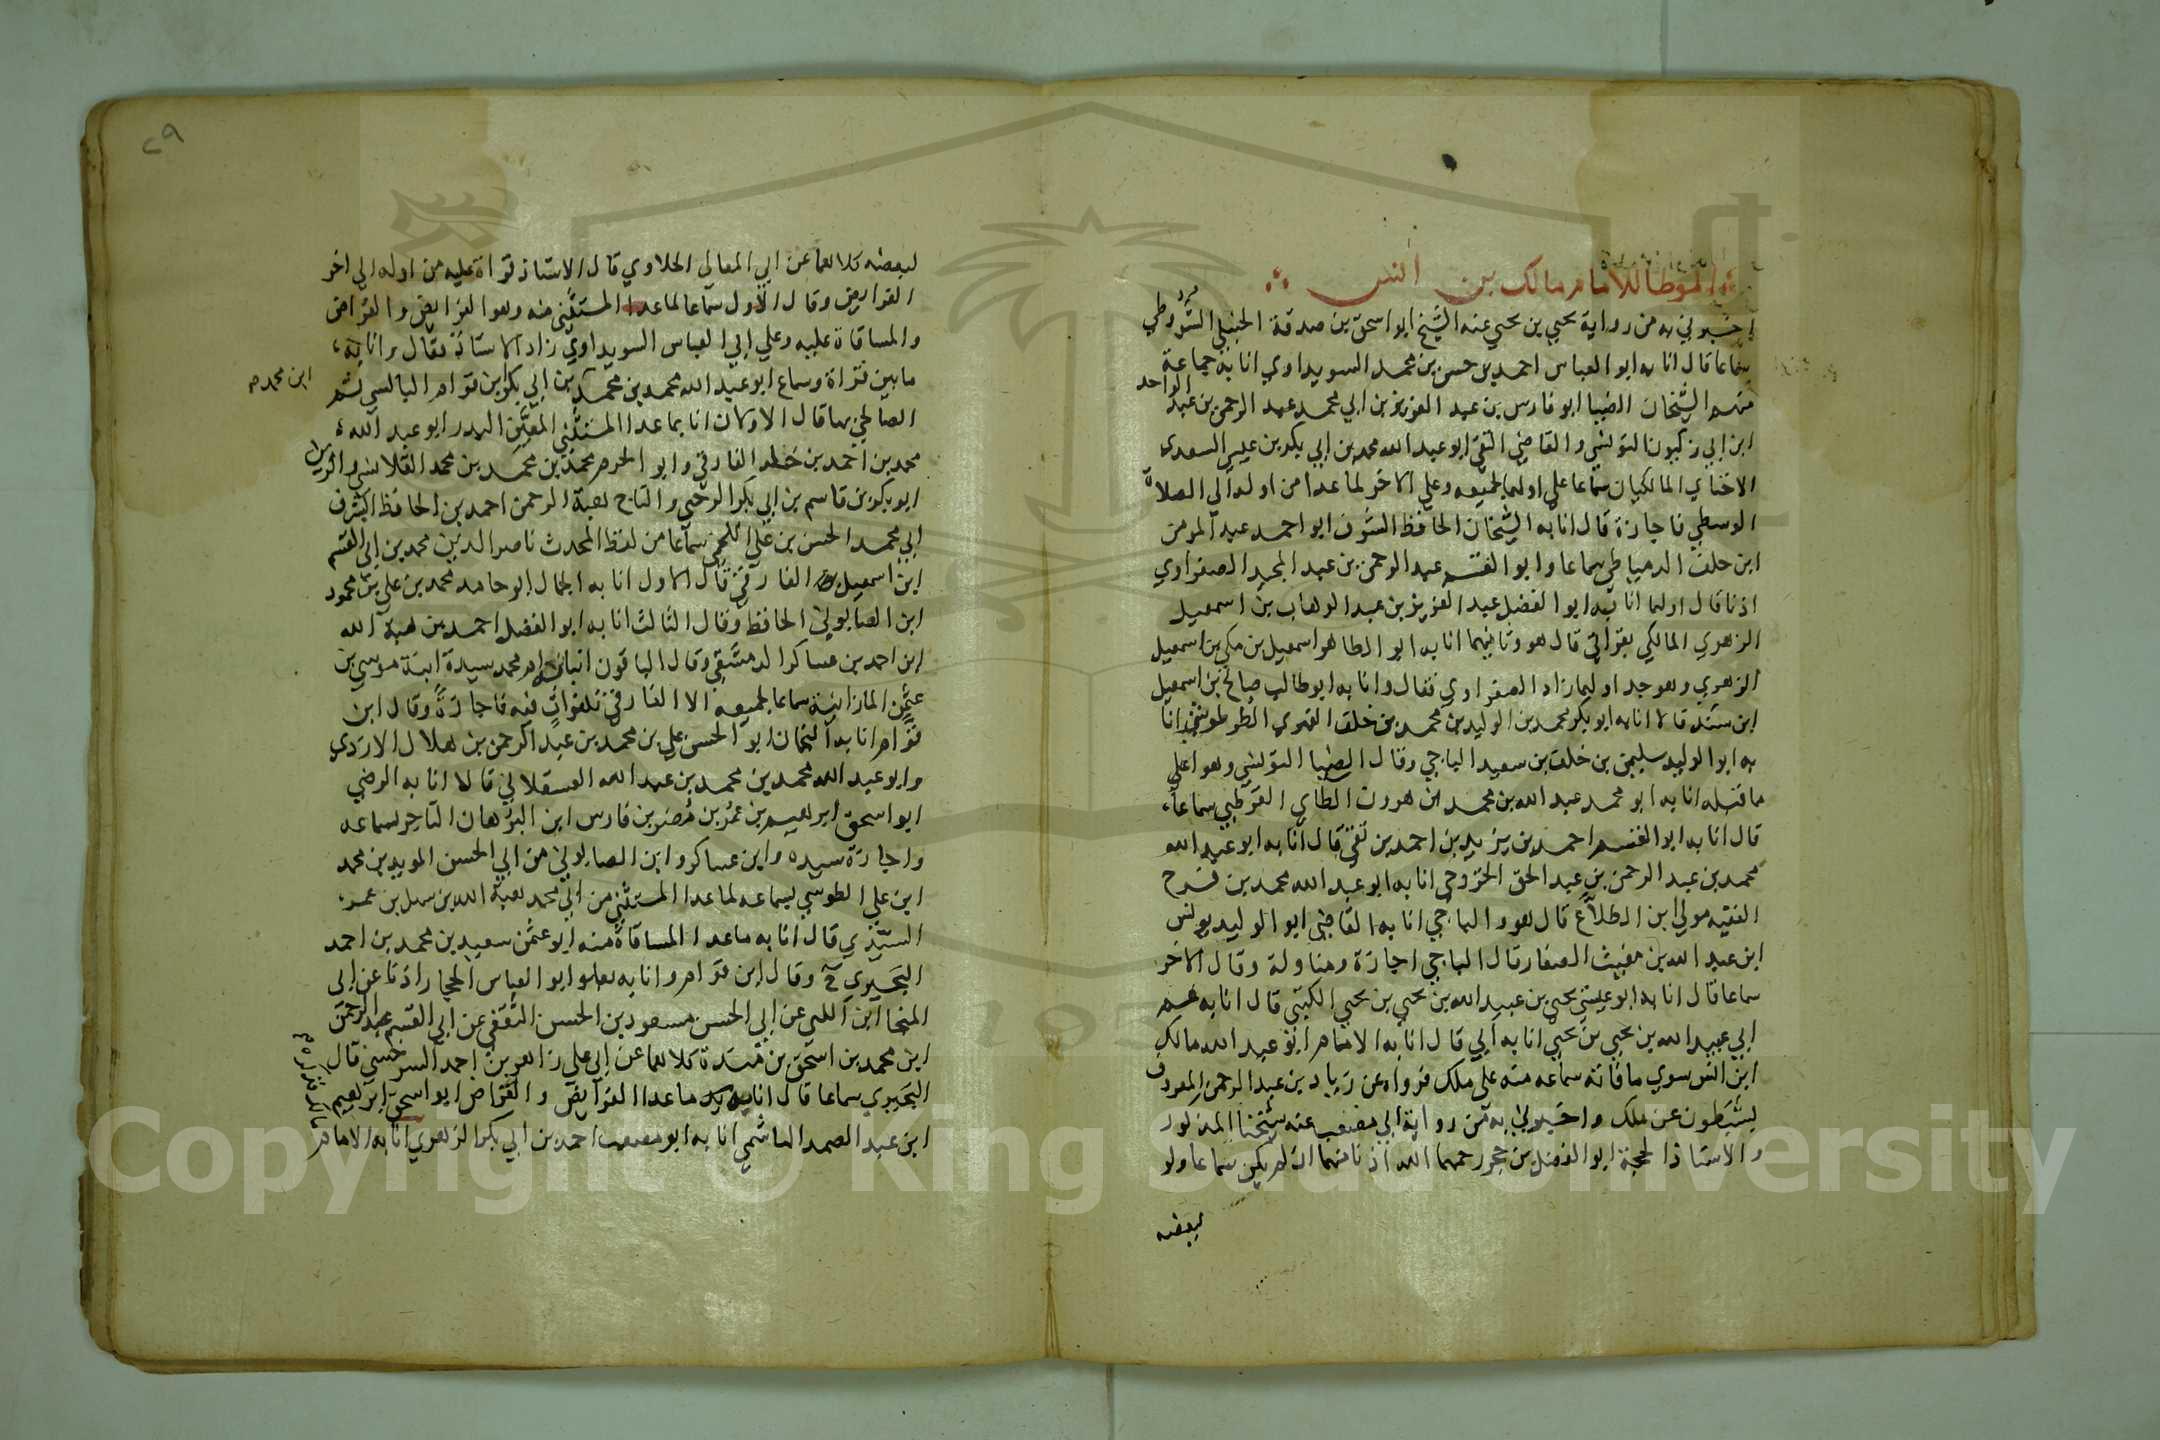 الموطا للامام مالك بن انس
اخبرني به من رواية يحيي بن يحيي عنه الشيخ ابو اسحق بن صدقة الحنبلي الشروطي
سماعا قال انا به ابو العباس احمد بن حسن بن محمد السويداوي انا به جماعة
منهم الشيخان الضيا ابو فارس بن عبد العزيز بن ابي محمد عبد الرحمن بن عبد الواحد
ابن ابي زكنون التونسي والقاضي التقي ابو عبد الله محمد بن ابي بكر بن عيسي السعدي
الاخناي المالكيان سماعا علي اولهما لجميعه وعلي الاخر لما عدا من اوله الي الصلاة
الوسطي فاجازة قال انا به الشيخان الحافظ الشرف ابو احمد عبد المومن
ابن خلف الدمياطي سماعا وابو القسم عبد الرحمن بن عبد المجيد الصفراوي
اذنا قال اولهما انا به ابو الفضل عبد العزيز بن عبد الوهاب بن اسمعيل
الزهري المالكي بقراتي قال هو وثانيهما انا به ابو الطاهر اسمعيل بن مكي بن اسمعيل
الزهري وهو جد اولهما زاد الصفراوي فقال وانا به ابو طالب صالح بن اسمعيل
ابن سند قالا انا به ابو بكر محمد بن الوليد بن محمد بن خلف الفهري الطرطوشي انا
به ابو الوليد سليمن بن خلف بن سعيد الباجي وقال الضيا التونسي وهو اعلي
ما قبله انا به ابو محمد عبد الله بن محمد ابن هرون الطاي القرطبي سماعا
قال انا به ابو القسم احمد بن يزيد بن احمد بن بقي قال انا به ابو عبد الله
محمد بن عبد الرحمن بن عبد الحق الخزرجي انا به ابو عبد الله محمد بن فرح
الفقيه مولي ابن الطلاع قال هو والباجي انا به القاضي ابو الوليد يونس
ابن عبد الله بن مغيث الصفار قال الباجي اجازة ومناولة وقال الاخر
سماعا قال انا به ابو عيسي يحيي بن عبيد الله بن يحيي بن يحيي الليثي قال انا به عم
ابي عبيد الله بن يحيي بن يحيي انا به ابي قال انا به الامام ابو عبد الله مالك
ابن انس سوي ما فاته سماعه منه علي ملك فرواه عن زياد بن عبد الرحمن المعروف
بشبطون عن ملك واخبرني به من رواية ابي مصعب عنه شيخنا المذكور
والاستاذ الحجة ابو الفضل بن حجر رحمهما الله اذنا منهما ان لم يكن سماعا ولو
لبعضه
٢٩
لبعضه كلاهما عن ابي المعالي الحلاوي قال الاستاذ قراة عليه من اوله الي اخر
القراريض وقال الاول سماعا لما عدا المستثني منه وهو الفرايض والقراض
والمساقاة عليه وعلي ابي العباس السويداوي زاد الاستاذ فقال وانا به
ما بين قراة وسماع ابو عبد الله محمد بن محمد بن ابي بكر بن قوام البالسي ثم
ابن محمد صح
الصالحي بها قال الاولان انا بما عدا المستثني المعين البدر ابو عبد الله
محمد بن احمد بن خالد الفارقي وابو الحرم محمد بن محمد بن محمد القلانسي والزين
ابو بكر بن قاسم بن ابي بكر الرحبي والتاج هبة الرحمن احمد بن الحافظ الشرف
ابي محمد الحسن بن علي اللخمي سماعا من لفظ المحدث ناصر الدين محمد بن ابي القسم
ابن اسمعيل الفارقي قال الاول انا به الجمال ابو حامد محمد بن علي بن محمود
ابن الصابوني الحافظ وقال الثالث انا به ابو الفضل احمد بن هبة الله
ابن احمد بن عساكر الدمشقي وقال الباقون انباتنا ام محمد سيدة ابنة موسي بن
عثمن المارانية سماعا لجميعه الا الفارقي فلفوات فيه فاجازة وقال ابن
قوام انا به الشيخان ابو الحسن علي بن محمد بن عبد الرحمن بن هلال الازدي
وابو عبد الله محمد بن محمد بن عبد الله العسقلاني قالا انا به الرضي
ابو اسحق ابرهيم بن عمر بن مضر بن فارس ابن البرهان التاجر بسماعه
واجازة سيده وابن عساكر وابن الصابوني من ابي الحسن المويد بن محمد
ابن علي الطوسي بسماعه لما عدا المستثني من ابي محمد هبة الله بن سهل بن عمر
السيدي قال انا به ماعدا المساقاة منه ابو عثمن سعيد بن محمد بن احمد
البحيري ح وقال ابن قوام وانا به بعلو ابو العباس الحجار اذنا عن ابي
المنجا ابن اللتي عن ابي الحسن مسعود بن الحسن الثقفي عن ابي القسم عبد الرحمن
ابن محمد بن اسحق بن مندة كلاهما عن ابي علي زاهر بن احمد السرخسي قال
البحيري سماعا قال انا به ماعدا الفرايض والقراض ابو اسحق ابرهيم
ابن عبد الصمد الهاشمي انا به ابو مصعب احمد بن ابي بكر الزهري انا به الامام